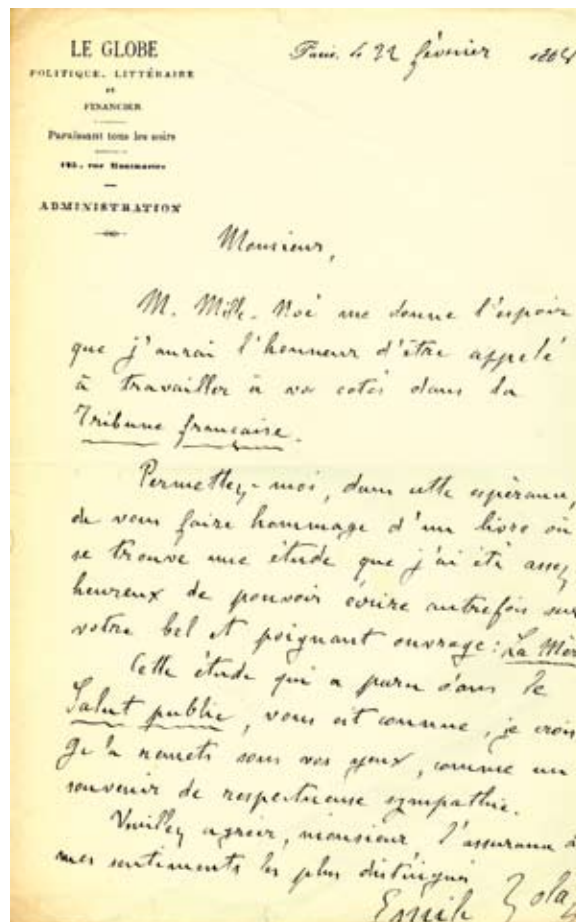 LE GLOBE
POLITIQUE, LITTÉRAIRE
et
FINANCIER
Paraissant tous les soirs
rue Montmartre
ADMINISTRATION
Paris, le 22 février
Monsieur,
M. Noé me donne l'espoir
que j'aurai l'honneur d'être appelé
à travailler à vos cotés dans la
Tribune française.
Permettez-moi, dans cette espérance,
de vous faire hommage d'un livre où
se trouve une étude que j'ai été assez
heureux de pouvoir écrire autrefois sur
votre bel et poignant ouvrage : La
Cette étude qui a paru dans le
Salut public, vous est connue, je crois
Je la remets sous vos yeux, comme un
souvenir de respectueuse sympathie.
Veuillez agréer, monsieur, l'assurance
mes sentiments les plus distingués
Emile Zola